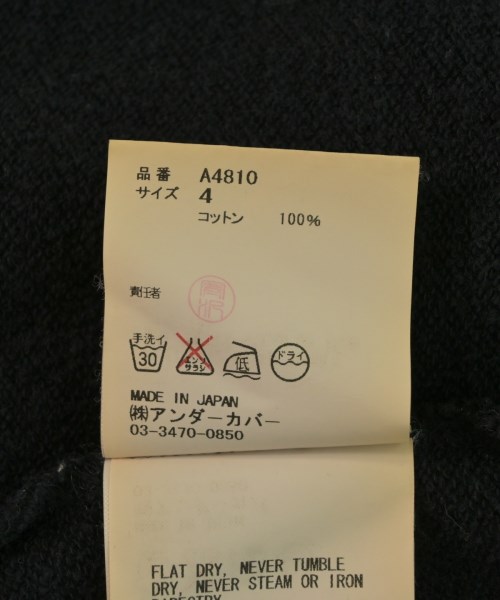 品番 A4810
サイズ 4
コットン 100%
責任者
手洗イ
30
エンソ
サラシ
低
ドライ
MADE IN JAPAN
㈱アンダーカバー
03-3470-0850
FLAT DRY, NEVER TUMBLE
DRY, NEVER STEAM OR IRON